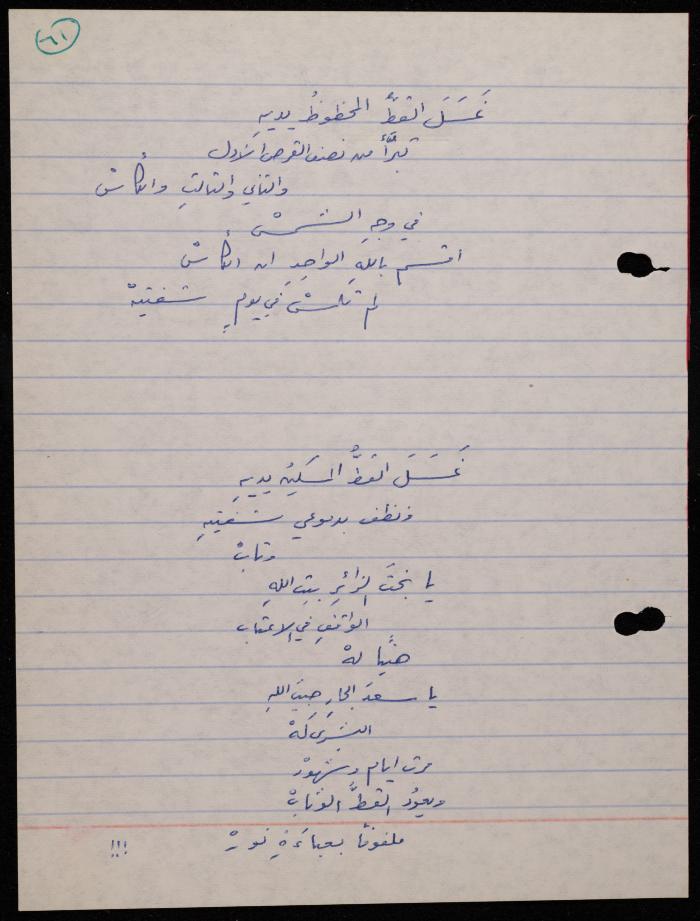 ٦١
غَسَلَ القطُّ المحظوظُ يديهِ
تبرَّأ من نصف القرص الاول
والثاني والثالثِ والكأسْ
في وجهِ الشمسْ
اقسم باللهِ الواحِدِ ان الكأسْ
لم تلمسْ في يومٍ شفتيهْ
غَسَلَ القطُّ المسكينُ يديهِ
ونظف بدموعي شفتيهِ
وتابْ
يا بختَ الزائرِ بيتِ اللهِ
الواقفِ في الاعتاب
هنيًا لهْ
يا سعدَ الجارِ حبيبَ اللهِ
البشرى لهْ
مرت ايام وشهورْ
ويعودُ القطُّ التوّابْ
ملفوفًا بعباءَةِ نورْ !!!